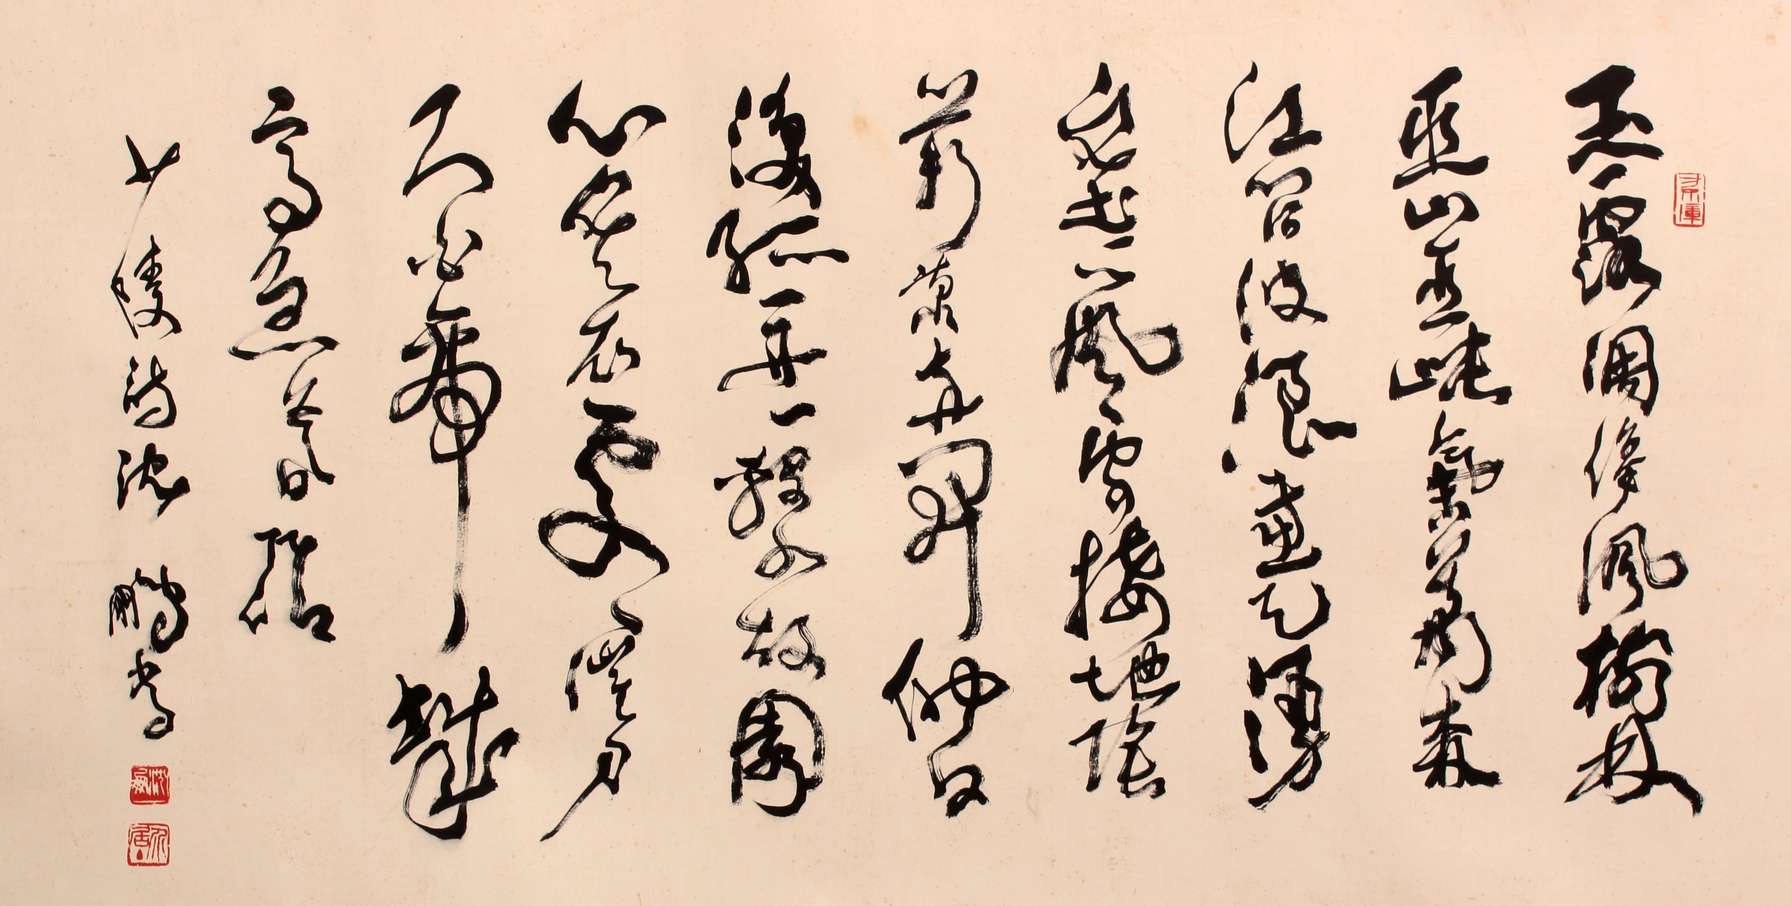 玉露凋傷楓樹林
巫山巫峽氣蕭森
江間波浪兼天湧
塞上風雲接地陰
叢菊兩開他日
淚孤舟一繫故園
心寒衣處處催刀
尺白帝城
高急暮砧
少陵詩沈鵬書
沈鵬